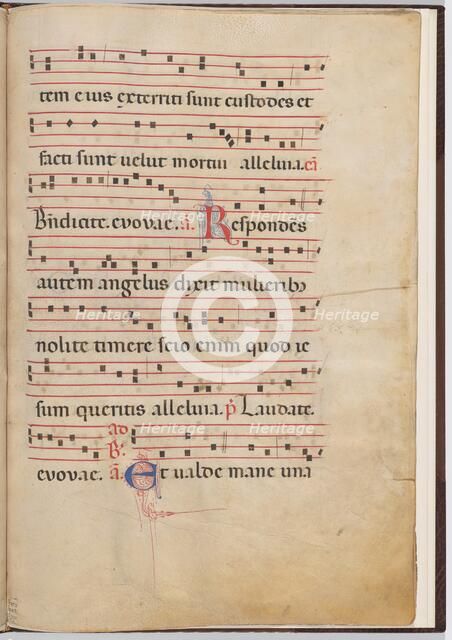 tem eius exterriti sunt custodes et
facti sunt uelut mortui alleluia. cã
Bñdicite. evovae. ã. Respondes
autem angelus dixit mulierib9
nolite timere scio enim quod ie
sum queritis alleluia. p̃ Laudate.
ad
B.
evovae. ã. Et ualde mane una
Heritage
Heritage
Heritage
Heritage
Heritage
Heritage